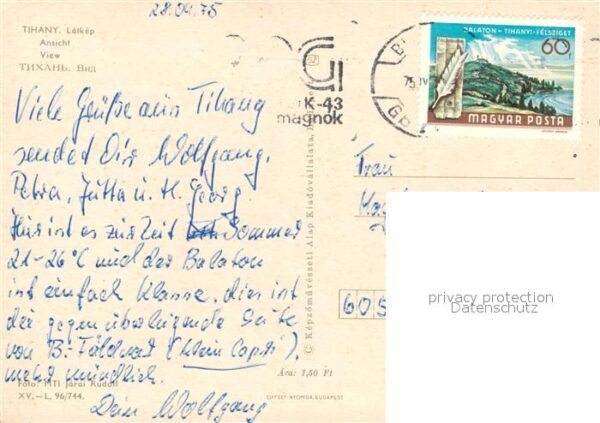 28.04.75
TIHANY. Látkép
Ansicht
View
ТИХАНЬ. Вид
Viele Grüße aus Tihany
sendet Dir Wolfgang,
Petra, Jutta u. H. Georg
Hier ist es zur Zeit Sommer
21-26°C und der Balaton
ist einfach Klasse. Dies ist
die gegenüberliegende Seite
von B.-Földvar (klein Capri).
mehr mündlich.
Dein Wolfgang
Foto: MTI Járai Rudolf
XV.—L. 96/744.
K-43
magnók
75. IV
BALATON - TIHANYI-FÉLSZIGET
60f
MAGYAR POSTA
© Képzőművészeti Alap Kiadóvállalata,
Frau
605
Ára: 1,50 Ft
OFFSET-NYOMDA, BUDAPEST
privacy protection
Datenschutz